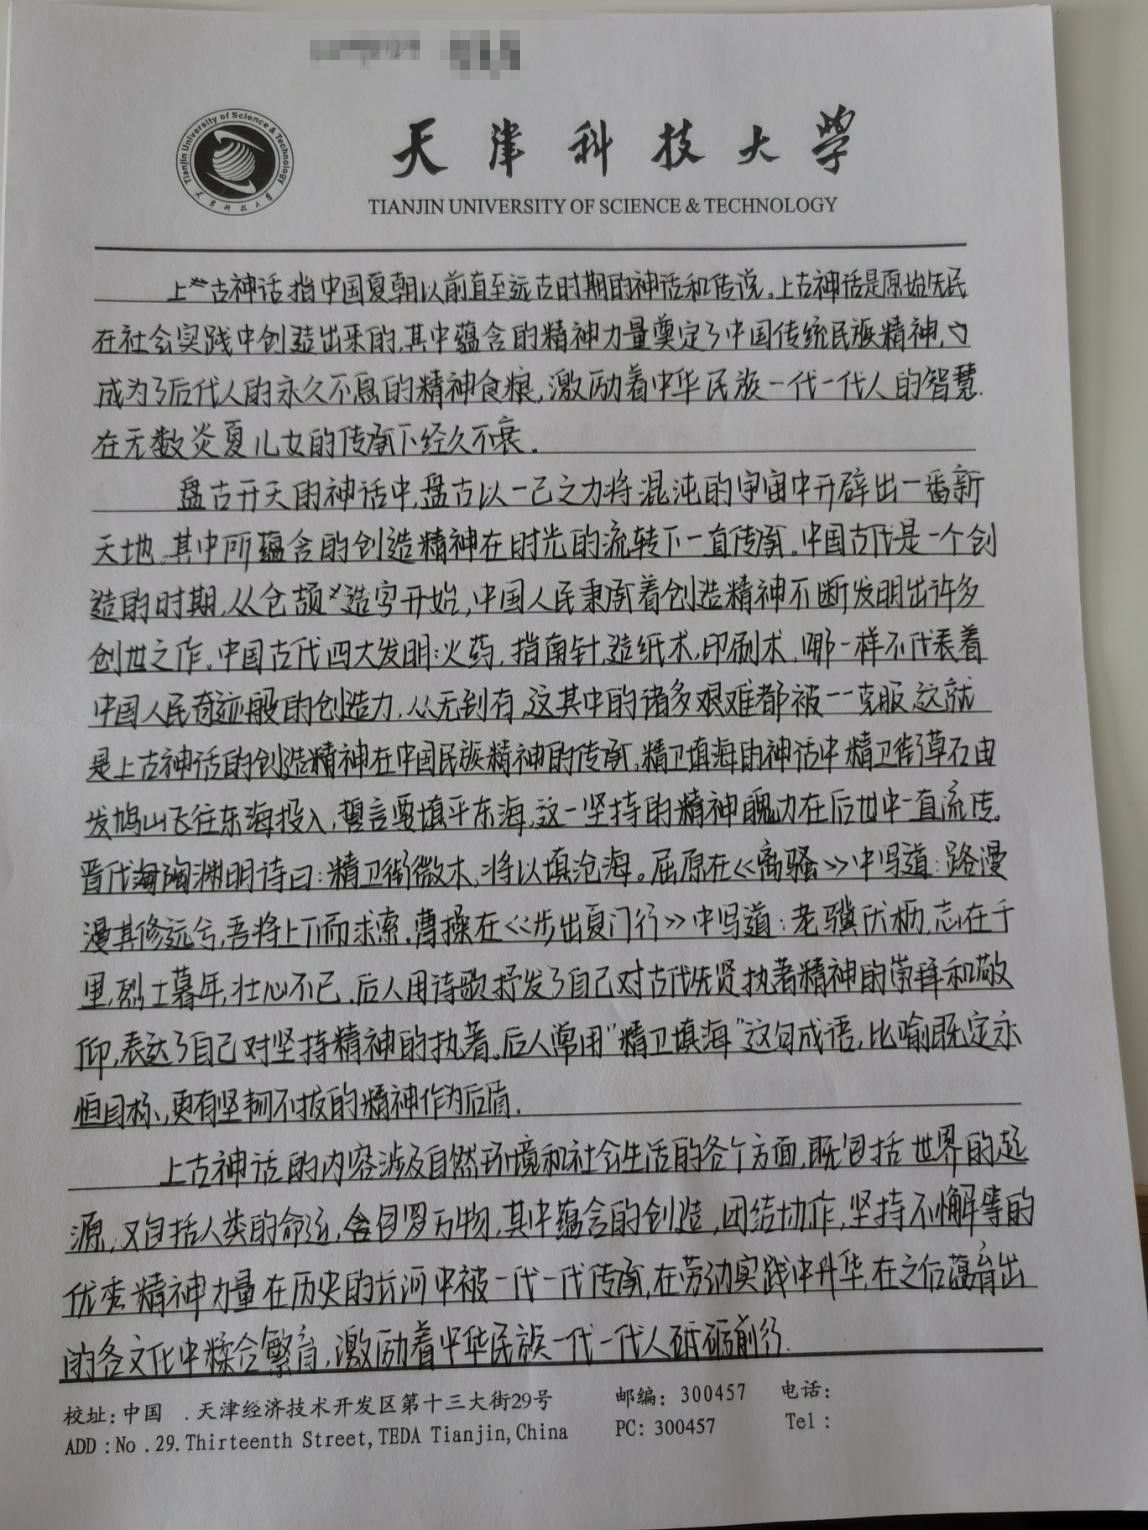 天津科技大学
TIANJIN UNIVERSITY OF SCIENCE & TECHNOLOGY
上古神话指中国夏朝以前直至远古时期的神话和传说。上古神话是原始先民
在社会实践中创造出来的,其中蕴含的精神力量奠定了中国传统民族精神,
成为了后代人的永久不息的精神食粮,激励着中华民族一代一代人的智慧.
在无数炎夏儿女的传承下经久不衰.
盘古开天的神话中,盘古以一己之力将混沌的宇宙中开辟出一番新
天地,其中所蕴含的创造精神在时光的流转下一直传承.中国古代是一个创
造的时期,从仓颉造字开始,中国人民秉承着创造精神不断发明出许多
创世之作.中国古代四大发明:火药,指南针,造纸术,印刷术,哪一样不代表着
中国人民奇迹般的创造力,从无到有,这其中的诸多艰难都被一一克服,这就
是上古神话的创造精神在中国民族精神的传承,精卫填海的神话中精卫衔草石由
发鸠山飞往东海投入,誓言要填平东海,这一坚持的精神魄力在后世中一直流传。
晋代陶渊明诗曰:精卫衔微木,将以填沧海。屈原在《离骚》中写道:路漫
漫其修远兮,吾将上下而求索,曹操在《步出夏门行》中写道:老骥伏枥,志在千
里,烈士暮年,壮心不已,后人用诗歌抒发了自己对古代先贤执著精神的崇拜和敬
仰,表达了自己对坚持精神的执著。后人常用"精卫填海"这句成语,比喻既定永
恒目标,更有坚韧不拔的精神作为后盾.
上古神话的内容涉及自然环境和社会生活的各个方面,既包括世界的起
源,又包括人类的命运,包罗万物,其中蕴含的创造,团结协作,坚持不懈等的
优秀精神力量在历史的长河中被一代一代传承,在劳动实践中升华,在之后蕴育出
的各文化中糅合繁育,激励着中华民族一代一代人砥砺前行.
校址:中国 .天津经济技术开发区第十三大街29号 邮编:300457 电话:
ADD :No .29.Thirteenth Street,TEDA Tianjin,China PC: 300457 Tel :